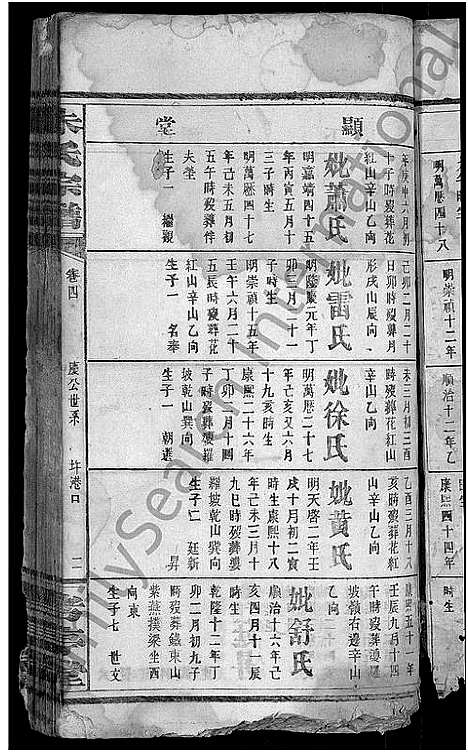 顯
堂
年庚申六月初
十子時歿葬花
紅山辛山乙向
妣蕭氏
明嘉靖四十五
年丙寅五月十
三子時生
明萬厯四十七
年己未五月初
五午時歿葬侔
夫塋
生子一 繼觀
己卯二月二十
日卯時歿葬月
形戌山辰向
妣雷氏
明隆慶元年丁
卯三月十一
子時生
明崇禎十五年
壬午六月二十
五辰時歿葬花
紅山辛山乙向
生子一 名奉
未三月初三酉
時歿葬花紅山
辛山乙向
妣徐氏
明萬厯二十七
年己亥又六月
十九亥時生
康熙二十六年
丁卯一月十四
子時歿葬獏羅
坡乾山巽向
生子一 朝選
乙酉三月十八
亥時歿葬花紅
山辛山乙向
妣黃氏
明天啓二年壬
戌十月初二寅
時生康熙十八
年己未三月十
九巳時歿葬獏
羅坡乾山巽向
生子二 廷新
昇
康熙五十一年
壬辰九月十四
午時歿葬獏羅
坡嶺右邊辛山
乙向
妣舒氏
順治十六年己
亥四月十一辰
時生
乾隆十二年丁
卯二月初九子
時歿葬鐵東山
紫燕撲梁坐西
向東
生子七 世文
朱氏宗譜
卷四
慶公世系
圷港口
二
明萬厯四十八
明崇禎十二年
順治十二年乙
康熙四十四年
時生
FamilySearch International